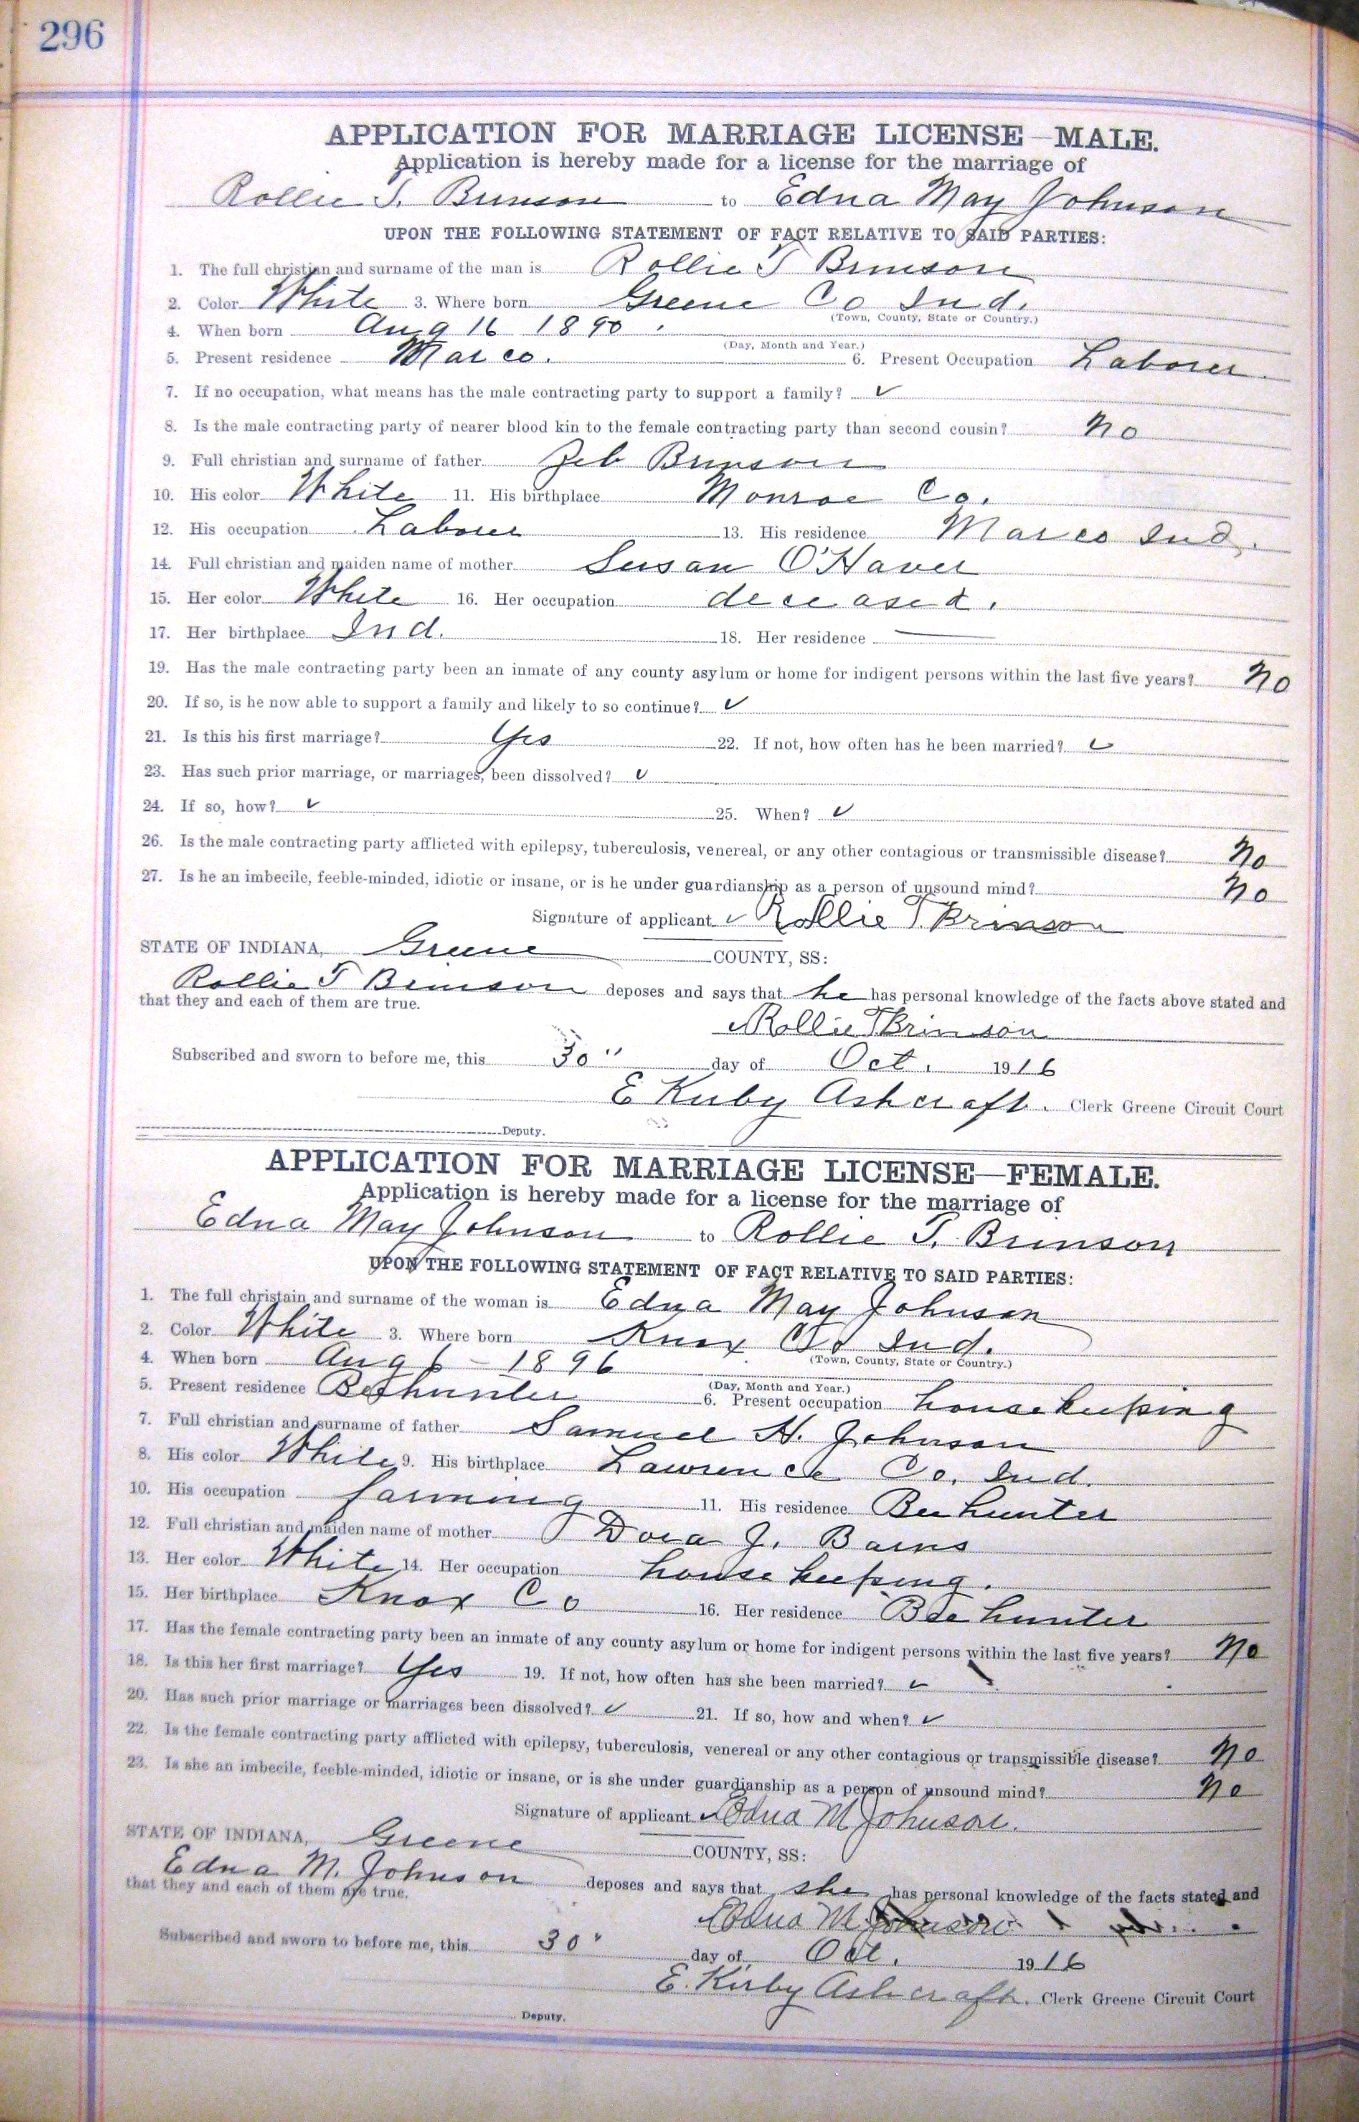 296
APPLICATION FOR MARRIAGE LICENSE—MALE.
Application is hereby made for a license for the marriage of
Rollie T. Brinson to Edna May Johnson
UPON THE FOLLOWING STATEMENT OF FACT RELATIVE TO SAID PARTIES:
1. The full christian and surname of the man is Rollie T Brinson
2. Color White 3. Where born Greene Co Ind.
(Town, County, State or Country.)
4. When born Aug 16 1890.
(Day, Month and Year.)
5. Present residence Marco. 6. Present Occupation Laborer.
7. If no occupation, what means has the male contracting party to support a family? ✓
8. Is the male contracting party of nearer blood kin to the female contracting party than second cousin? No
9. Full christian and surname of father Zeb Brinson
10. His color White 11. His birthplace Monroe Co.
12. His occupation Laborer 13. His residence Marco Ind.
14. Full christian and maiden name of mother Susan O'Haver
15. Her color White 16. Her occupation deceased.
17. Her birthplace Ind. 18. Her residence —
19. Has the male contracting party been an inmate of any county asylum or home for indigent persons within the last five years? No
20. If so, is he now able to support a family and likely to so continue? ✓
21. Is this his first marriage? Yes 22. If not, how often has he been married? ✓
23. Has such prior marriage, or marriages, been dissolved? ✓
24. If so, how? ✓ 25. When? ✓
26. Is the male contracting party afflicted with epilepsy, tuberculosis, venereal, or any other contagious or transmissible disease? No
27. Is he an imbecile, feeble-minded, idiotic or insane, or is he under guardianship as a person of unsound mind? No
Signature of applicant ✓ Rollie T. Brinson
STATE OF INDIANA, Greene COUNTY, SS:
Rollie T Brinson deposes and says that he has personal knowledge of the facts above stated and
that they and each of them are true.
✓ Rollie T Brinson
Subscribed and sworn to before me, this 30" day of Oct. 1916
E Kirby Ashcraft. Clerk Greene Circuit Court
Deputy.
APPLICATION FOR MARRIAGE LICENSE—FEMALE.
Application is hereby made for a license for the marriage of
Edna May Johnson to Rollie T. Brinson
UPON THE FOLLOWING STATEMENT OF FACT RELATIVE TO SAID PARTIES:
1. The full christain and surname of the woman is Edna May Johnson
2. Color White 3. Where born Knox Co Ind.
(Town, County, State or Country.)
4. When born Aug 6 - 1896
(Day, Month and Year.)
5. Present residence Beehunter 6. Present occupation housekeeping
7. Full christian and surname of father Samuel H. Johnson
8. His color White 9. His birthplace Lawrence Co. Ind.
10. His occupation farming 11. His residence Beehunter
12. Full christian and maiden name of mother Dora J. Barns
13. Her color White 14. Her occupation housekeeping.
15. Her birthplace Knox Co 16. Her residence Beehunter
17. Has the female contracting party been an inmate of any county asylum or home for indigent persons within the last five years? No
18. Is this her first marriage? Yes 19. If not, how often has she been married? ✓
20. Has such prior marriage or marriages been dissolved? ✓ 21. If so, how and when? ✓
22. Is the female contracting party afflicted with epilepsy, tuberculosis, venereal or any other contagious or transmissible disease? No
23. Is she an imbecile, feeble-minded, idiotic or insane, or is she under guardianship as a person of unsound mind? No
Signature of applicant ✓ Edna M Johnson.
STATE OF INDIANA, Greene COUNTY, SS:
Edna M. Johnson deposes and says that she has personal knowledge of the facts stated and
that they and each of them are true.
✓ Edna M Johnson
Subscribed and sworn to before me, this 30" day of Oct. 1916
E. Kirby Ashcraft. Clerk Greene Circuit Court
Deputy.